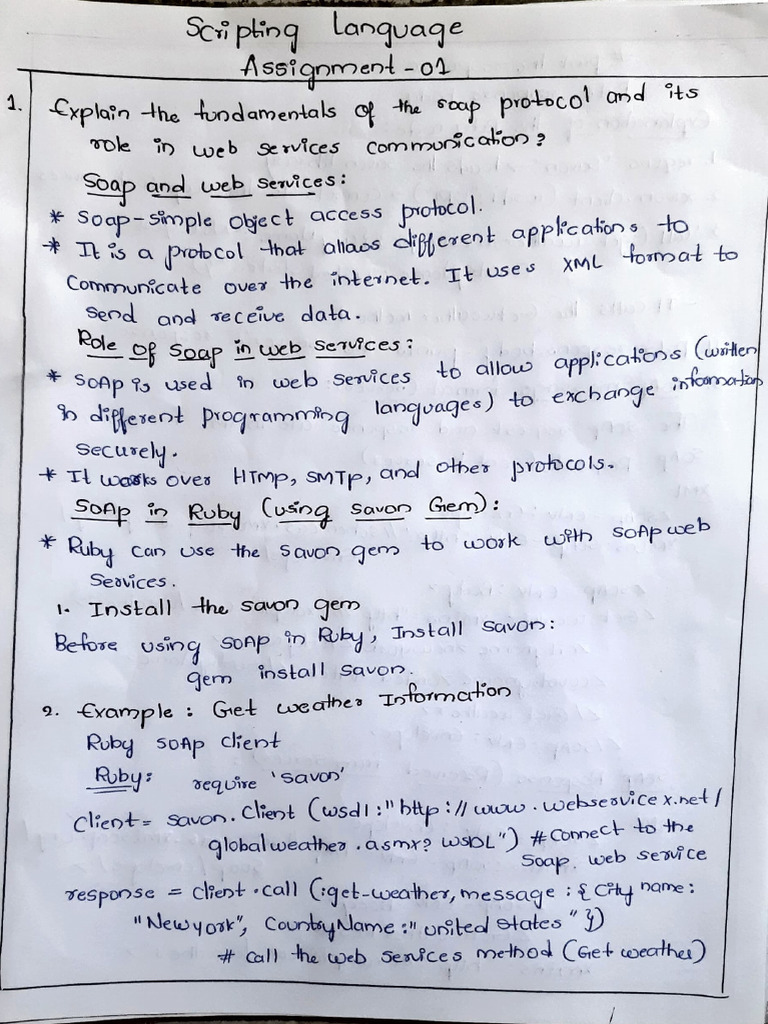 Scripting Language
Assignment - 01
1. Explain the fundamentals of the soap protocol and its
role in web services communication?
Soap and web services:
* Soap-simple object access protocol.
* It is a protocol that allows different applications to
communicate over the internet. It uses XML format to
send and receive data.
Role of Soap in web services:
* SOAP is used in web services to allow applications (written
in different programming languages) to exchange information
securely.
* It works over HTMP, SMTP, and other protocols.
SOAP in Ruby (using Savon Gem):
* Ruby can use the savon gem to work with SOAP web
services.
1. Install the savon gem
Before using SOAP in Ruby, Install savon:
gem install savon.
2. Example: Get weather Information
Ruby SOAP client
Ruby: require 'savon'
Client = savon.client (wsdl:"http://www.webservicex.net/
globalweather.asmx?WSDL") #Connect to the
Soap web service
response = client.call (:get-weather, message: { City name:
"Newyork", CountryName:"united states" })
# call the web services method (Get weather)